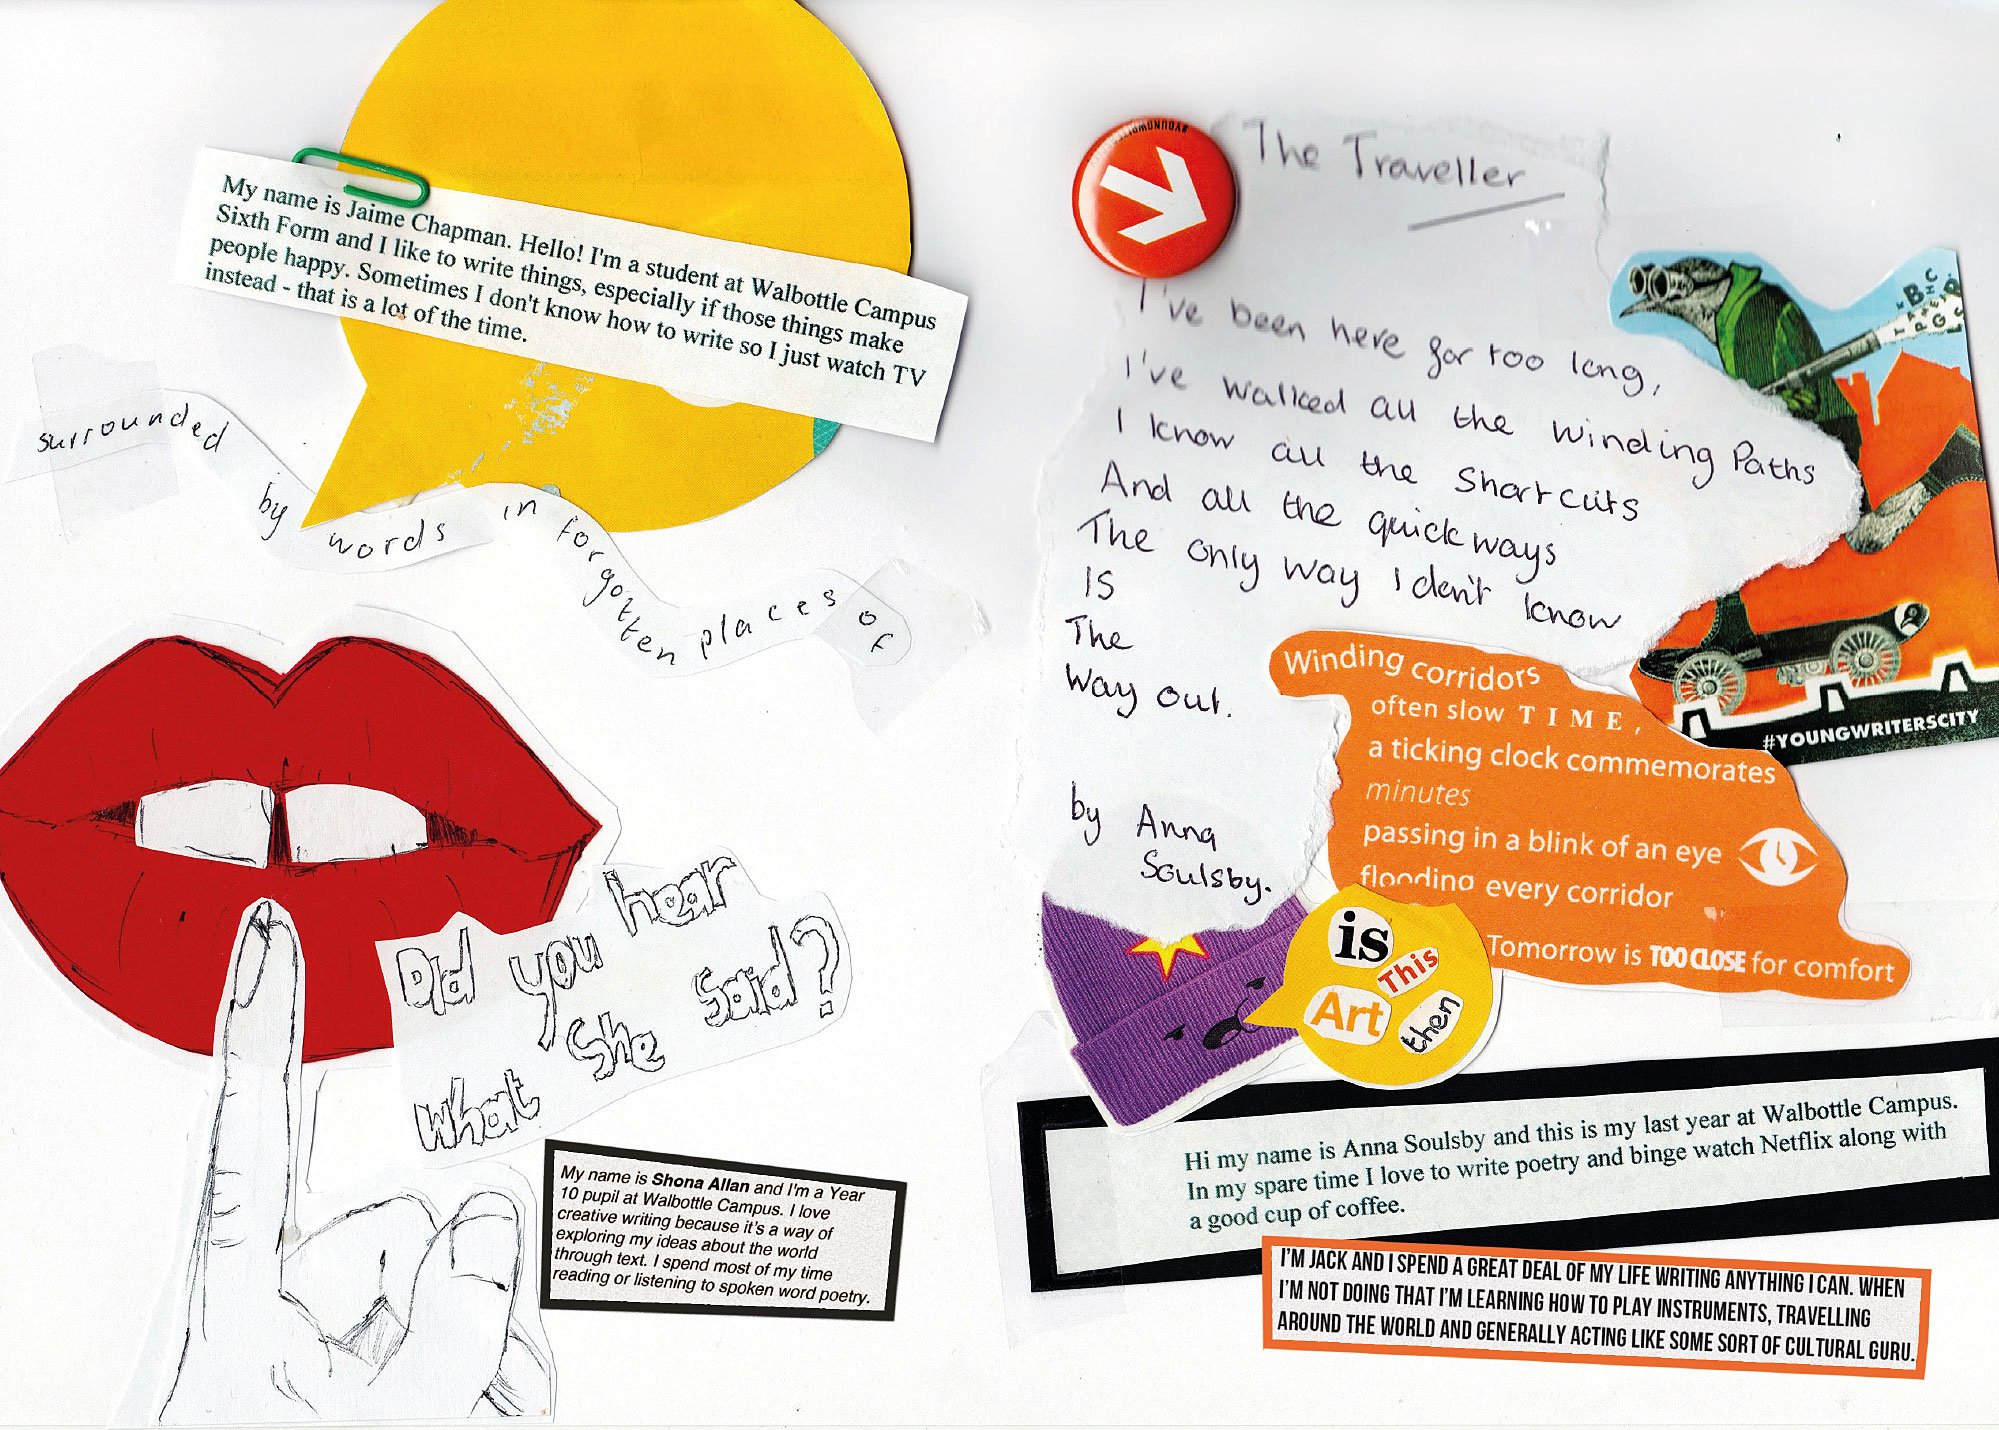 My name is Jaime Chapman. Hello! I'm a student at Walbottle Campus
Sixth Form and I like to write things, especially if those things make
people happy. Sometimes I don't know how to write so I just watch TV
instead - that is a lot of the time.
surrounded by words in forgotten places of
Did you hear
what She Said?
My name is Shona Allan and I'm a Year
10 pupil at Walbottle Campus. I love
creative writing because it's a way of
exploring my ideas about the world
through text. I spend most of my time
reading or listening to spoken word poetry.
The Traveller
I've been here for too long,
I've walked all the winding Paths
I know all the Shortcuts
And all the quick ways
The only way I don't know
IS
The
Way out.
by Anna
Soulsby.
#YOUNGWRITERSCITY
Winding corridors
often slow TIME,
a ticking clock commemorates
minutes
passing in a blink of an eye
flooding every corridor
Tomorrow is TOO CLOSE for comfort
is
This
Art
then
Hi my name is Anna Soulsby and this is my last year at Walbottle Campus.
In my spare time I love to write poetry and binge watch Netflix along with
a good cup of coffee.
I'M JACK AND I SPEND A GREAT DEAL OF MY LIFE WRITING ANYTHING I CAN. WHEN
I'M NOT DOING THAT I'M LEARNING HOW TO PLAY INSTRUMENTS, TRAVELLING
AROUND THE WORLD AND GENERALLY ACTING LIKE SOME SORT OF CULTURAL GURU.